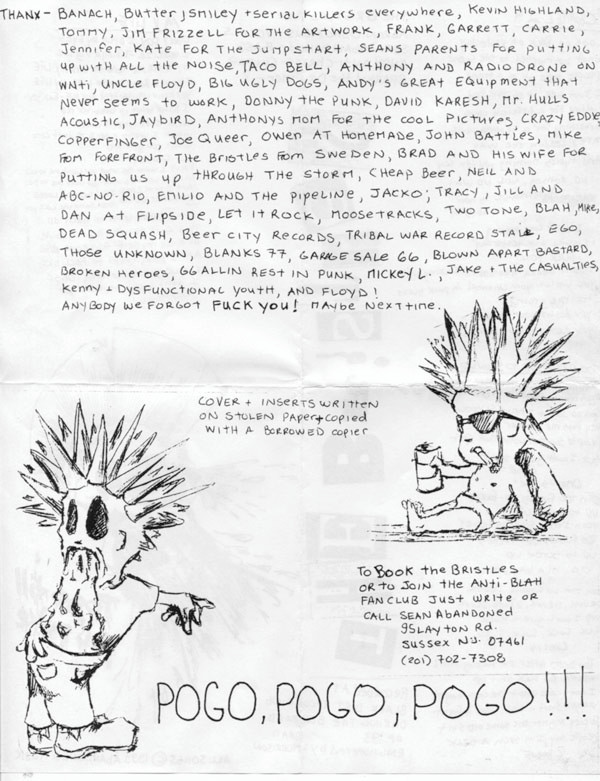 THANX - BANACH, Butter, SMILEY + SERIAL KILLERS everywhere, KEVIN HIGHLAND,
TOMMY, JIM FRIZZELL FOR THE ARTWORK, FRANK, GARRETT, CARRIE,
JENNIFER, KATE FOR THE JUMPSTART, SEANS PARENTS FOR PUTTING
UP WITH ALL THE NOISE, TACO BELL, ANTHONY AND RADIO DRONE ON
WNTI, UNCLE FLOYD, BIG UGLY DOGS, ANDY'S GREAT EQUIPMENT THAT
NEVER SEEMS TO WORK, DONNY THE PUNK, DAVID KARESH, MR. HULLS
ACOUSTIC, JAYBIRD, ANTHONYS MOM FOR THE COOL PICTURES, CRAZY EDDIE,
COPPERFINGER, JOE QUEER, OWEN AT HOMEMADE, JOHN BATTLES, MIKE
FROM FOREFRONT, THE BRISTLES FROM SWEDEN, BRAD AND HIS WIFE FOR
PUTTING US UP THROUGH THE STORM, CHEAP BEER, NEIL AND
ABC-NO-RIO, EMILIO AND THE PIPELINE, JACKO, TRACY, JILL AND
DAN AT FLIPSIDE, LET IT ROCK, MOOSETRACKS, TWO TONE, BLAH, MIKE,
DEAD SQUASH, BEER CITY RECORDS, TRIBAL WAR RECORD STALL, EGO,
THOSE UNKNOWN, BLANKS 77, GARAGE SALE 66, BLOWN APART BASTARD,
BROKEN HEROES, GG ALLIN REST IN PUNK, MICKEY L., JAKE + THE CASUALTIES,
KENNY + DYSFUNCTIONAL YOUTH, AND FLOYD!
ANYBODY WE FORGOT FUCK YOU! MAYBE NEXT TIME.
COVER + INSERTS WRITTEN
ON STOLEN PAPER + COPIED
WITH A BORROWED COPIER
TO BOOK THE BRISTLES
OR TO JOIN THE ANTI-BLAH
FANCLUB JUST WRITE OR
CALL SEAN ABANDONED
95 LAYTON RD.
SUSSEX N.J. 07461
(201) 702-7308
POGO, POGO, POGO!!!